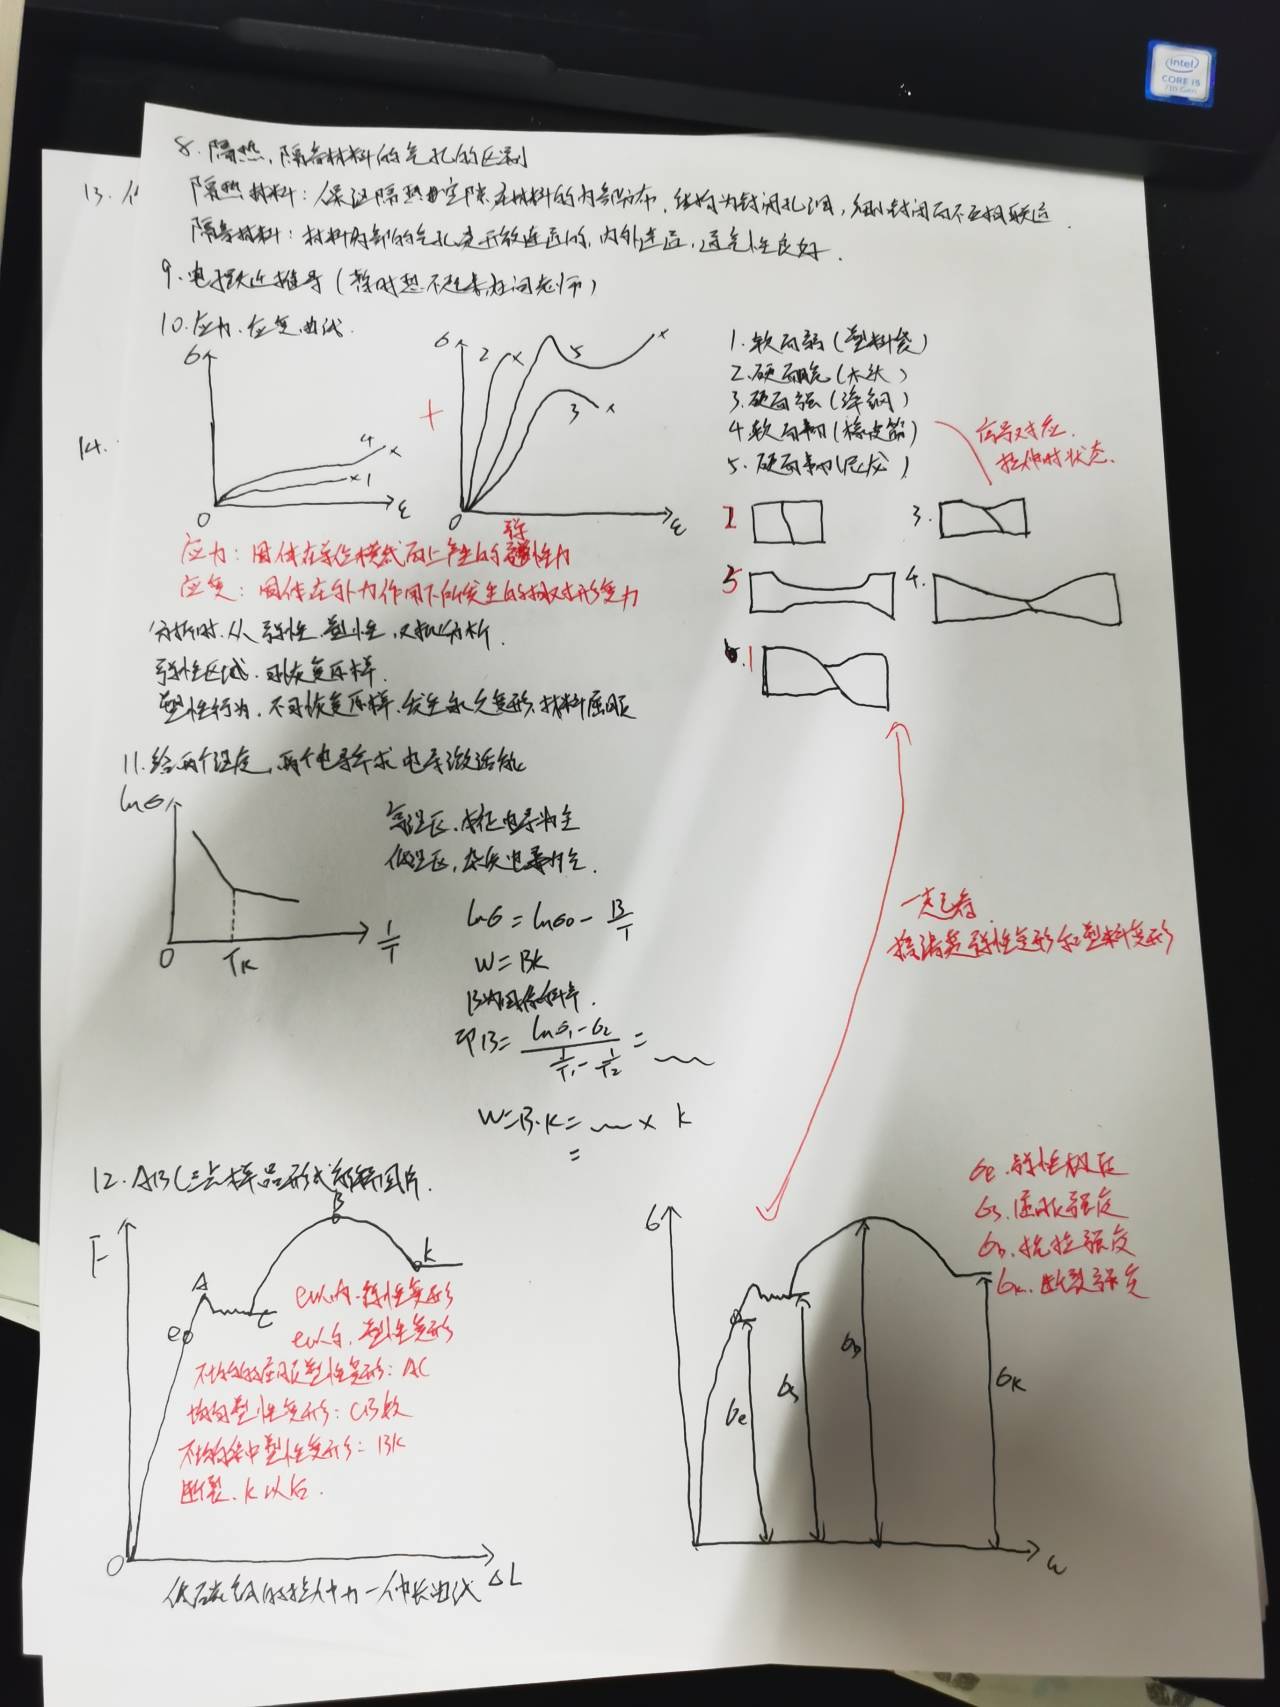 intel
CORE i5
7th Gen
8. 隔热、隔音材料的气孔的区别
13.
隔热材料：保证隔热 空隙 在材料的内部分布，结构为封闭孔洞，细小封闭而不互相联通
隔音材料：材料内部的气孔是开放连通的，内外连通，透气性良好.
9. 电 推导（暂时想不起来在问老师）
10. 应力、应变曲线.
14.
σ
4 ×
×1
0
ε
+
σ
2 ×
5
×
3 ×
0
ε
1. 软而弱（塑料袋）
2. 硬而脆（木头）
3. 硬而强（ 钢）
4 软而韧（橡皮筋）
5. 硬而韧（尼龙）
序号对应.
拉伸时状态.
2
3.
5
4.
1
弹
应力：固体在单位横截面上产生的 性力
应变：固体在外力作用下所发生的相对形变力
分析时，从弹性、塑性， 分析.
弹性区域，可恢复原样.
塑性行为，不可恢复原样，发生永久变形，材料屈服
11. 给两个温度，两个电导率求电导激活能
lnσ
0
TK
1/T
高温区，本征电导为主
低温区，杂质电导为主.
lnσ = lnσ0 - B/T
W = BK
B为图像斜率.
即B = (lnσ1 - σ2) / (1/T1 - 1/T2) =
W = B·K = × k
=
一起看
搞清楚弹性变形和塑料变形
12. ABC三点样品形式解释图片.
F
A
B
C
k
e
0
ΔL
e以内，弹性变形
e以后，塑性变形
不均匀屈服塑性变形：AC
均匀塑性变形：CB段
不均匀集中塑性变形：BK
断裂，K以后.
低碳钢的拉伸力—伸长曲线
σ
σe
σs
σb
σk
ε
σe. 弹性极限
σs. 屈服强度
σb. 抗拉强度
σk. 断裂强度